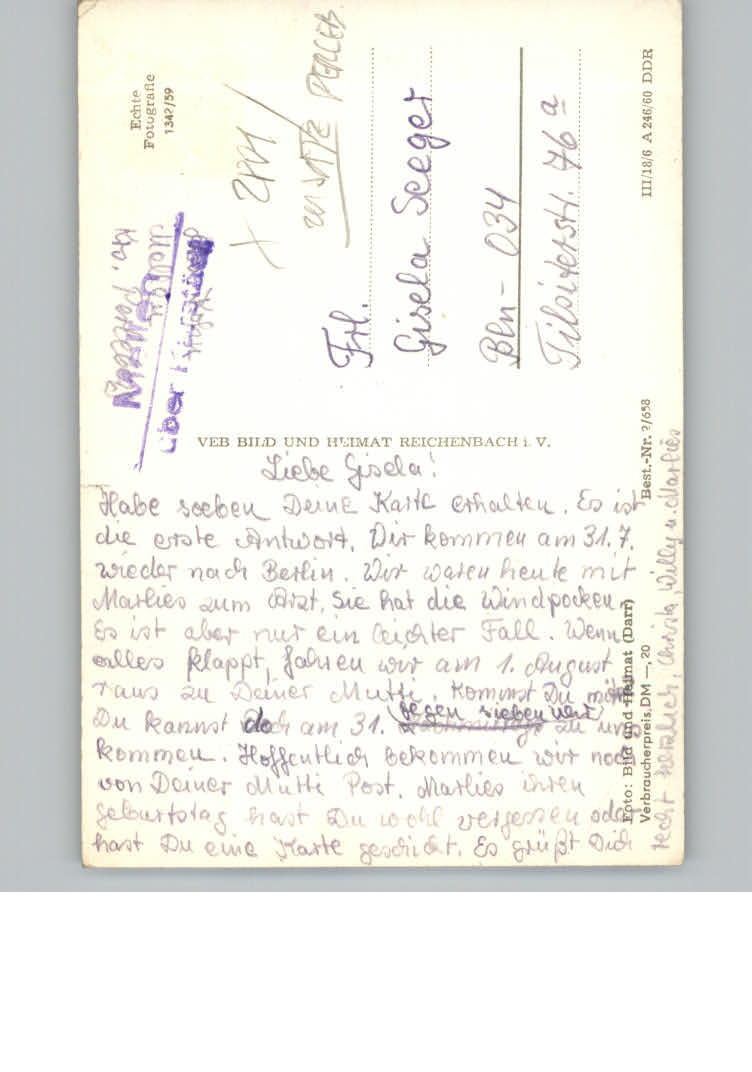 Echte
Fotografie
1342/59
Frl.
Gisela Seeger
Bln - 034
Tilsiterstr. 76a
über
III/18/6 A 246/60 DDR
VEB BILD UND HEIMAT REICHENBACH i. V.
Best.-Nr. 2/658
Foto: Bild und Heimat (Darr)
Verbraucherpreis DM —,20
Liebe Gisela!
Habe soeben Deine Karte erhalten. Es ist
die erste Antwort. Wir kommen am 31.7.
wieder nach Berlin. Wir waren heute mit
Marlies zum Arzt, sie hat die Windpocken.
Es ist aber nur ein leichter Fall. Wenn
alles klappt, fahren wir am 1. August
raus zu Deiner Mutti. Kommst Du mit
Du kannst doch am 31. gegen sieben Uhr zu uns
kommen. Hoffentlich bekommen wir noch
von Deiner Mutti Post. Marlies ihren
Geburtstag hast Du wohl vergessen oder
hast Du eine Karte geschickt. Es grüßt Dich
recht herzlich, Christa, Willy u. Marlies